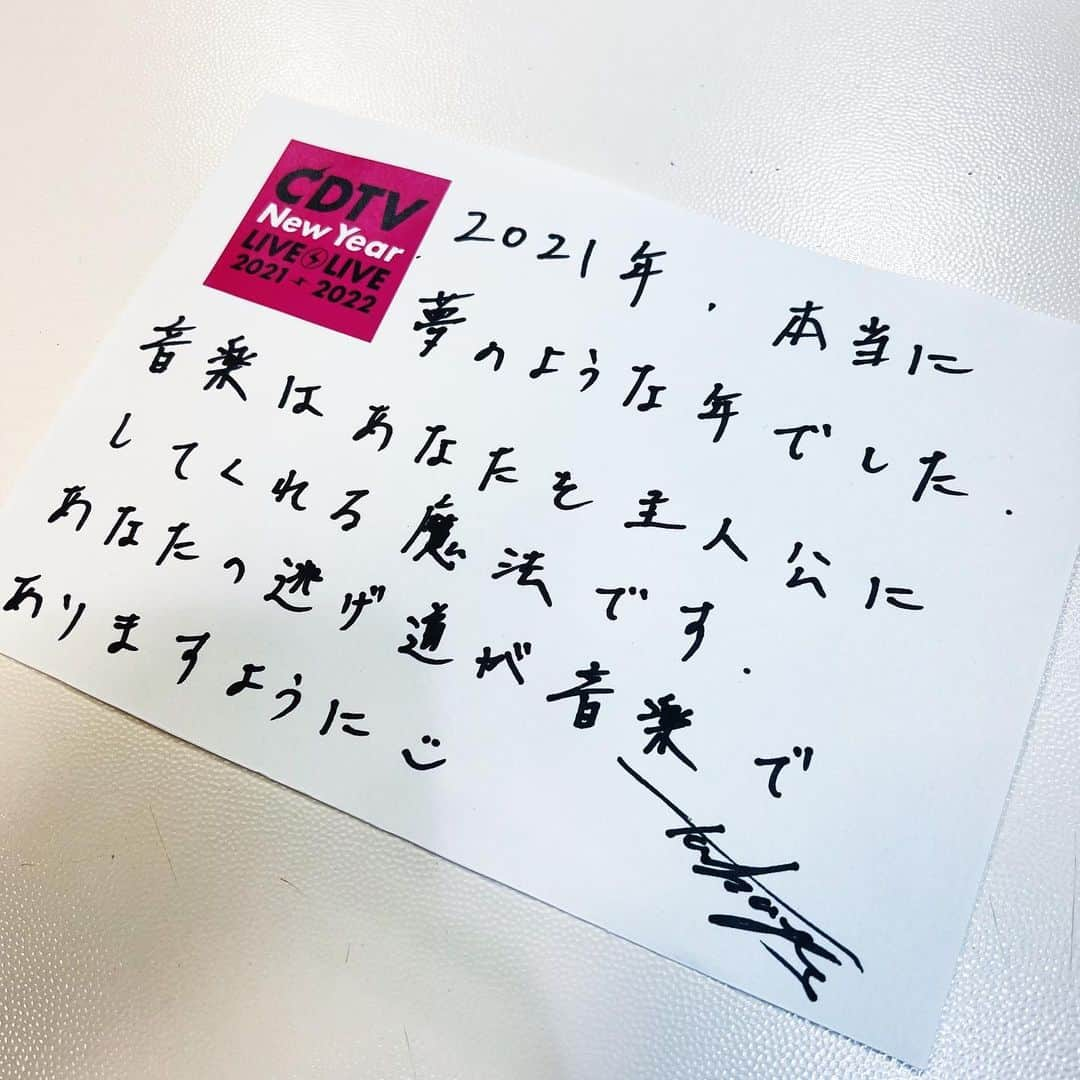 CDTV
New Year
LIVE LIVE
2021 → 2022
2021年. 本当に
夢のような年でした.
音楽はあなたを主人公に
してくれる魔法です.
あなたの逃げ道が音楽で
ありますように